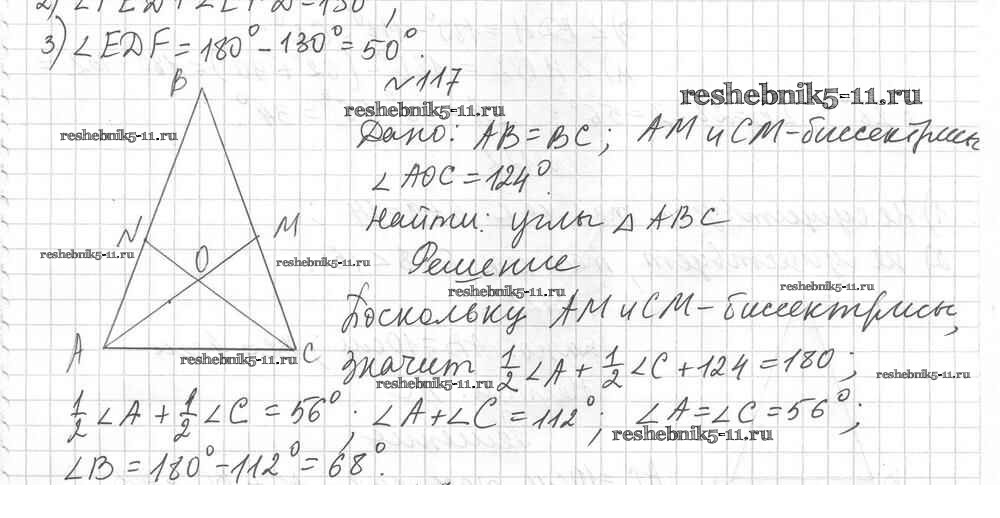 3) ∠EDF = 180° - 130° = 50°.
№117
reshebnik5-11.ru
reshebnik5-11.ru
reshebnik5-11.ru
B
Дано: AB = BC; AM и CM - биссектрисы
∠AOC = 124°.
Найти: углы △ABC
N
M
O
reshebnik5-11.ru
reshebnik5-11.ru
Решение
reshebnik5-11.ru
reshebnik5-11.ru
Поскольку AM и CM - биссектрисы,
A
C
reshebnik5-11.ru
значит 1/2 ∠A + 1/2 ∠C + 124 = 180;
reshebnik5-11.ru
reshebnik5-11.ru
1/2 ∠A + 1/2 ∠C = 56°; ∠A + ∠C = 112°; ∠A = ∠C = 56°;
reshebnik5-11.ru
∠B = 180° - 112° = 68°.